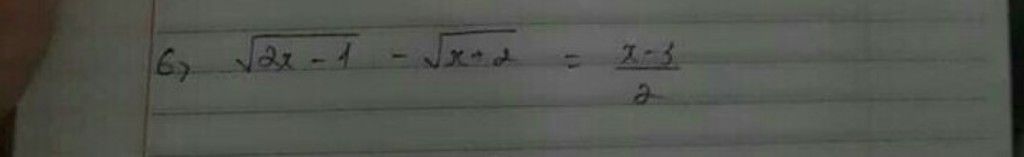 6, √(2x - 1) - √(x + 2) = (x - 3)/2